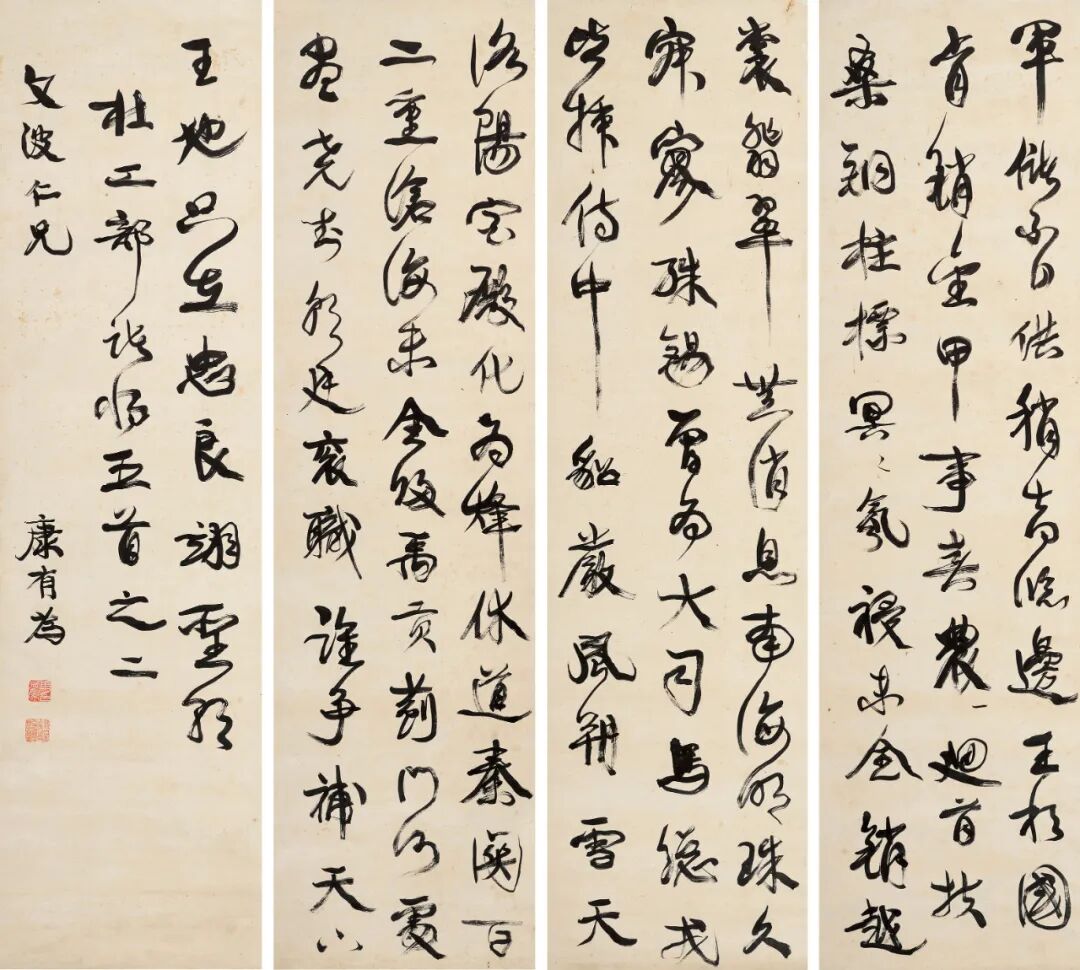 軍儲不自供稍喜臨邊王相國
肯銷金甲事春農廻首扶
桑銅柱標冥〻氛祲未全銷越
裳翡翠無消息南海明珠久
寂寥殊錫曾為大司馬總戎
皆插侍中貂嚴風朔雪天
洛陽宮殿化為烽休道秦關百
二重滄海未全歸禹貢薊門何處
盡堯封朝廷袞職誰爭補天下
王地只在忠良翊聖朝
杜工部諸將五首之二
文波仁兄
康有為